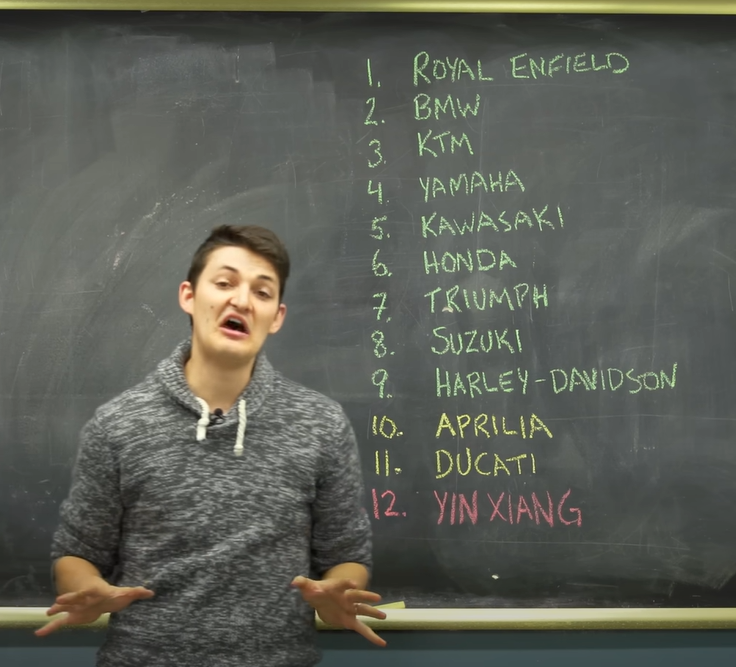 1. ROYAL ENFIELD
2. BMW
3. KTM
4. YAMAHA
5. KAWASAKI
6. HONDA
7. TRIUMPH
8. SUZUKI
9. HARLEY-DAVIDSON
10. APRILIA
11. DUCATI
12. YIN XIANG